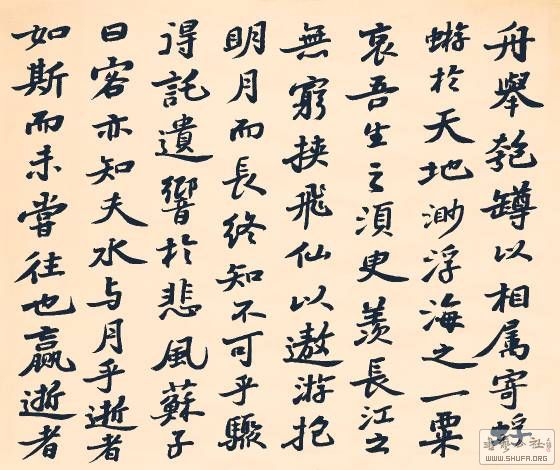 舟舉匏罇以相属寄蜉
蝣於天地渺浮海之一粟
哀吾生之須臾羨長江之
無窮挾飛仙以遨游抱
明月而長終知不可乎驟
得託遺響於悲風蘇子
曰客亦知夫水与月乎逝者
如斯而未嘗往也贏逝者
WWW.SHUFA.ORG